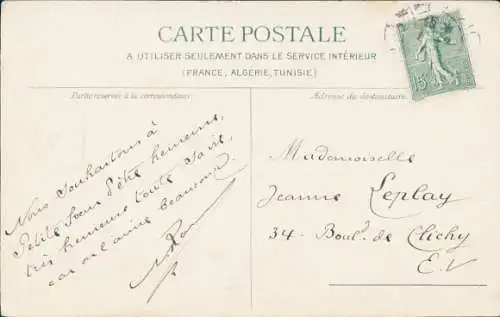 CARTE POSTALE
A UTILISER SEULEMENT DANS LE SERVICE INTÉRIEUR
(FRANCE, ALGERIE, TUNISIE)
Partie réservée à la correspondance
Adresse du destinataire
Nous souhaitons à
Petite Sœur d'être heureuse,
très heureuse toute sa vie,
car on l'aime beaucoup.
Mademoiselle
Jeanne Leplay
34 - Boul. de Clichy
E.V
15